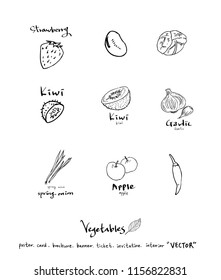 Strawberry
Kiwi
Kiwi
kiwi
Garlic
Garlic
spring onion
spring onion
Apple
apple
Vegetables
poster. card. brochure. banner. ticket. invitation. interior "VECTOR"
shutterstock.com · 1156822831